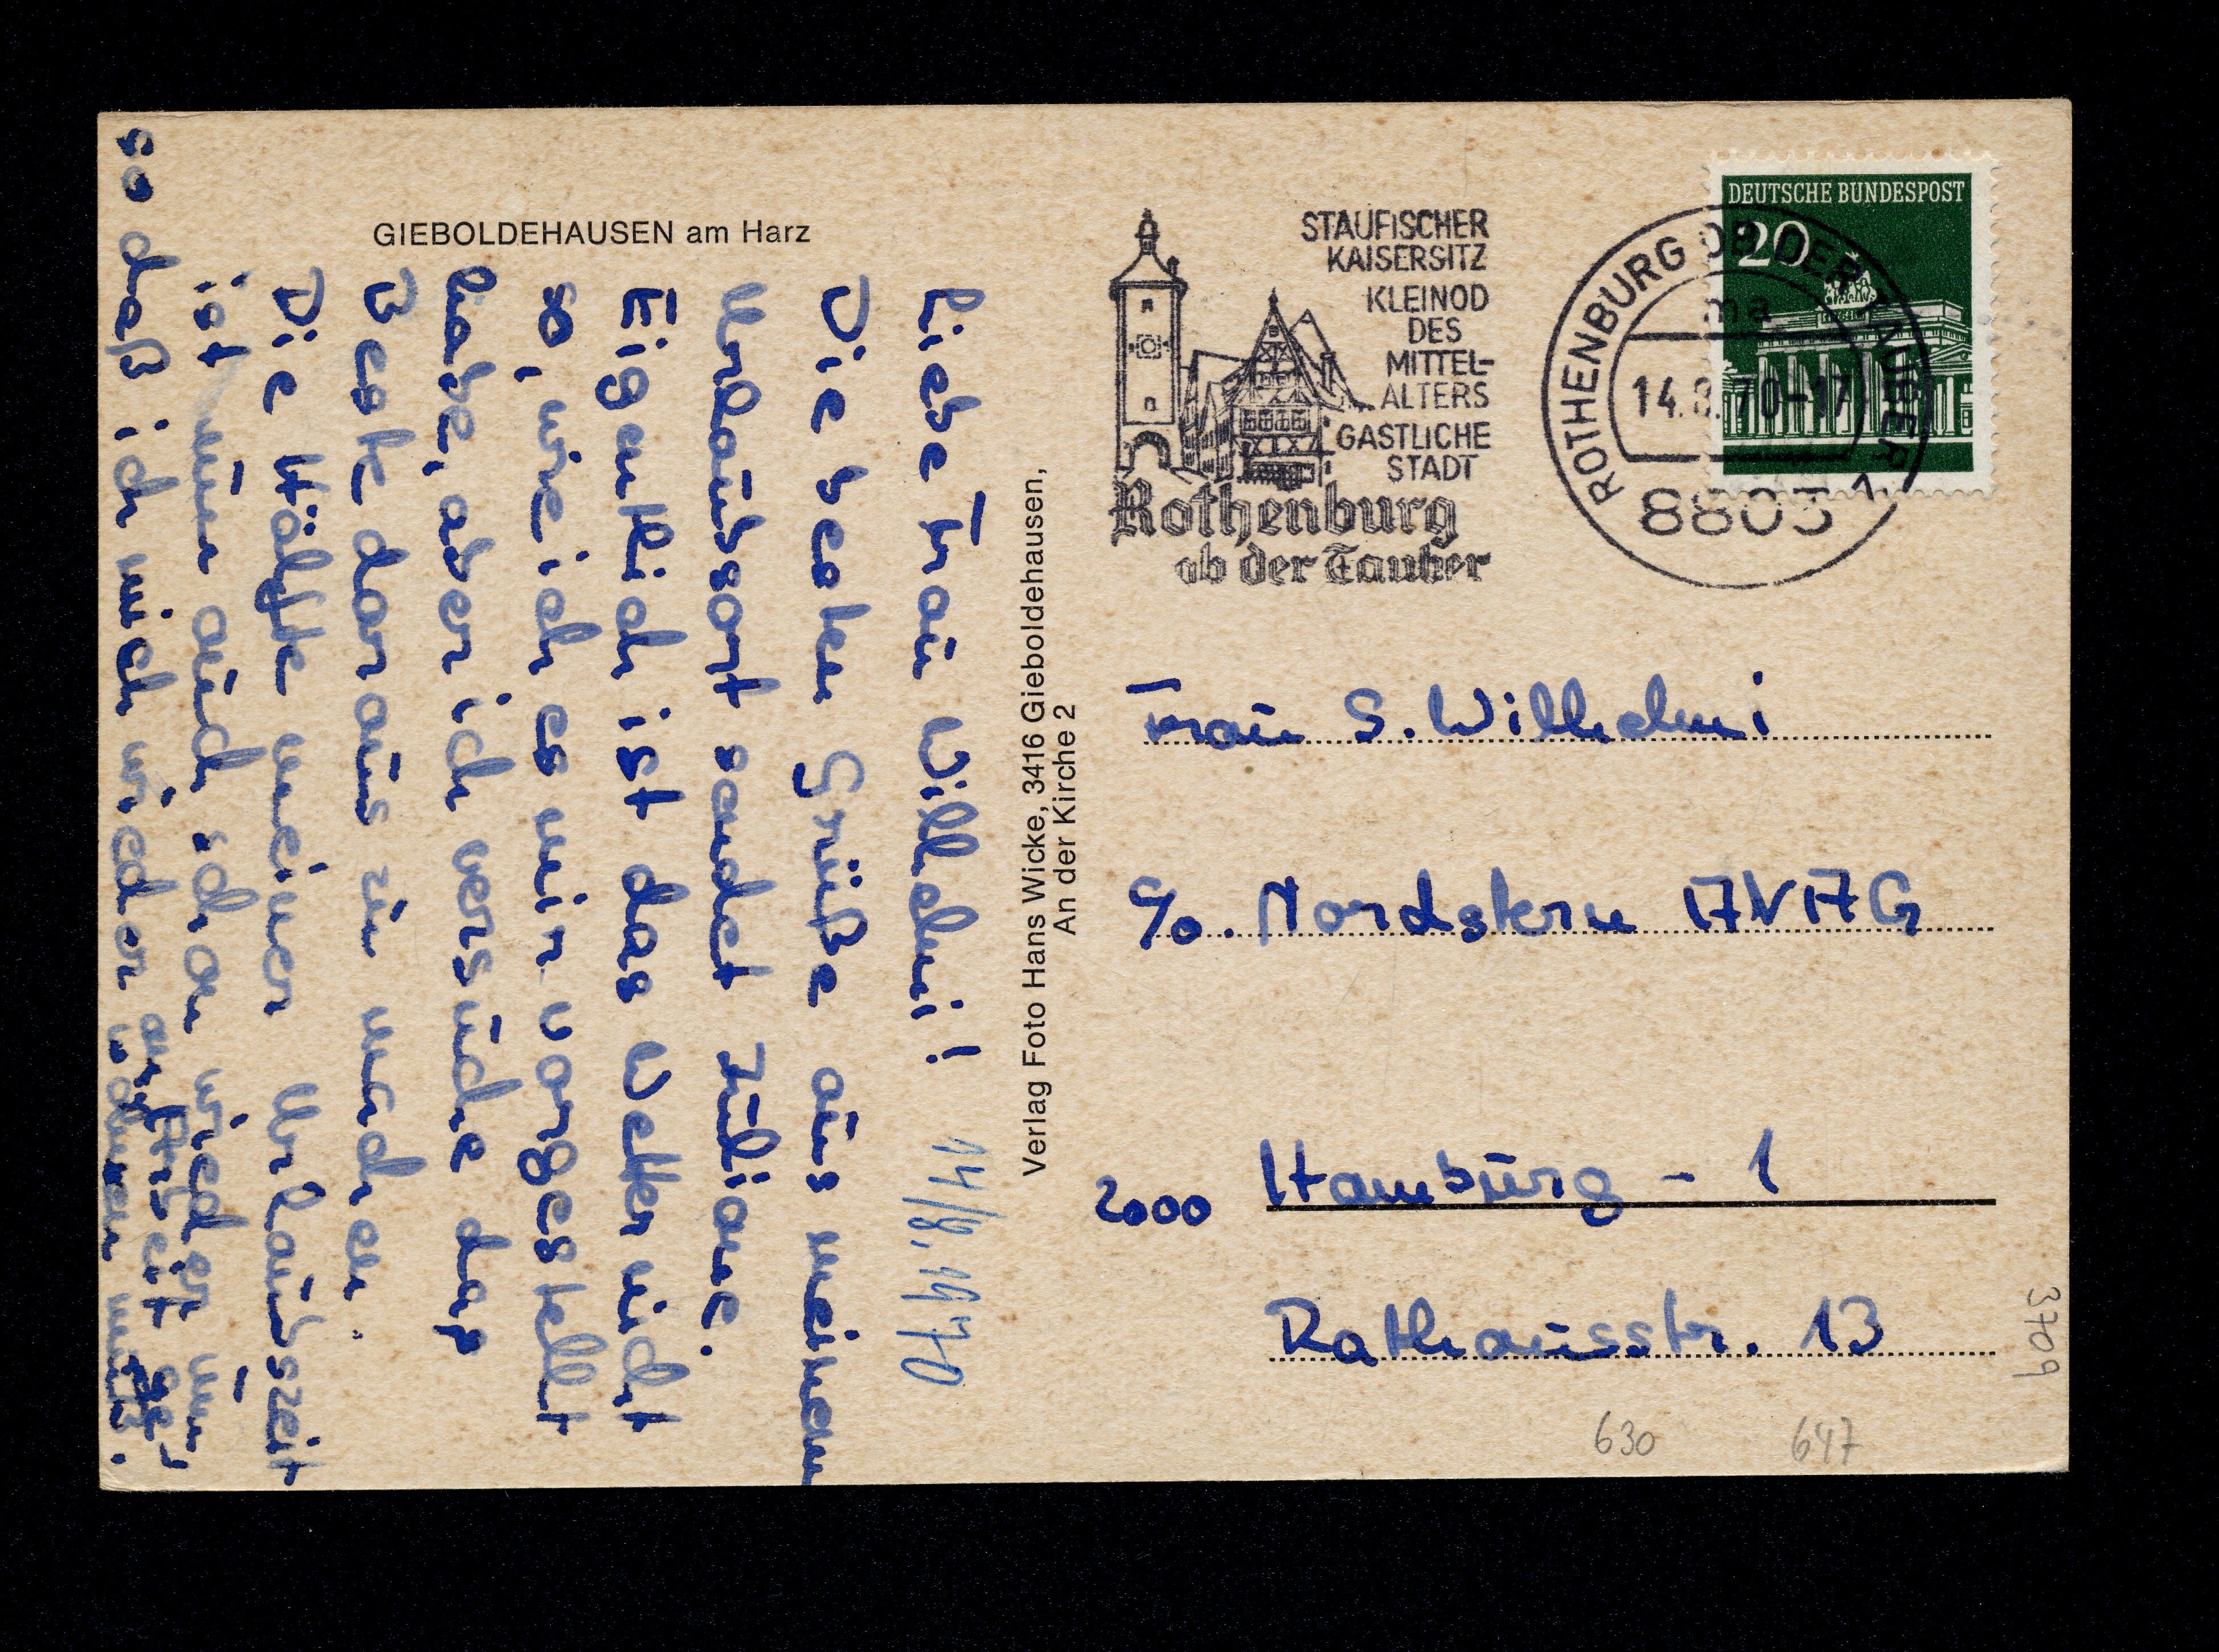 GIEBOLDEHAUSEN am Harz
Liebe Frau Wilhelmi! 14/8.1970
Die besten Grüße aus meinem
Urlaubsort sendet Juliane.
Eigentlich ist das Wetter nicht
so, wie ich es mir vorgestellt
habe, aber ich versuche das
Beste daraus zu machen.
Die Hälfte meiner Urlaubszeit
ist nun auch schon wieder um
so daß ich mich wieder an Arbeit ge-
wöhnen muß.
Verlag Foto Hans Wicke, 3416 Gieboldehausen,
An der Kirche 2
STAUFISCHER
KAISERSITZ
KLEINOD
DES
MITTEL-
ALTERS
GASTLICHE
STADT
Rothenburg
ob der Tauber
DEUTSCHE BUNDESPOST
20
ROTHENBURG OB DER TAUBER 1
ma
14.8.70-17
8803
Frau S. Wilhelmi
c/o. Nordstern AVAG
2000 Hamburg - 1
Rathausstr. 13
3709
630 647